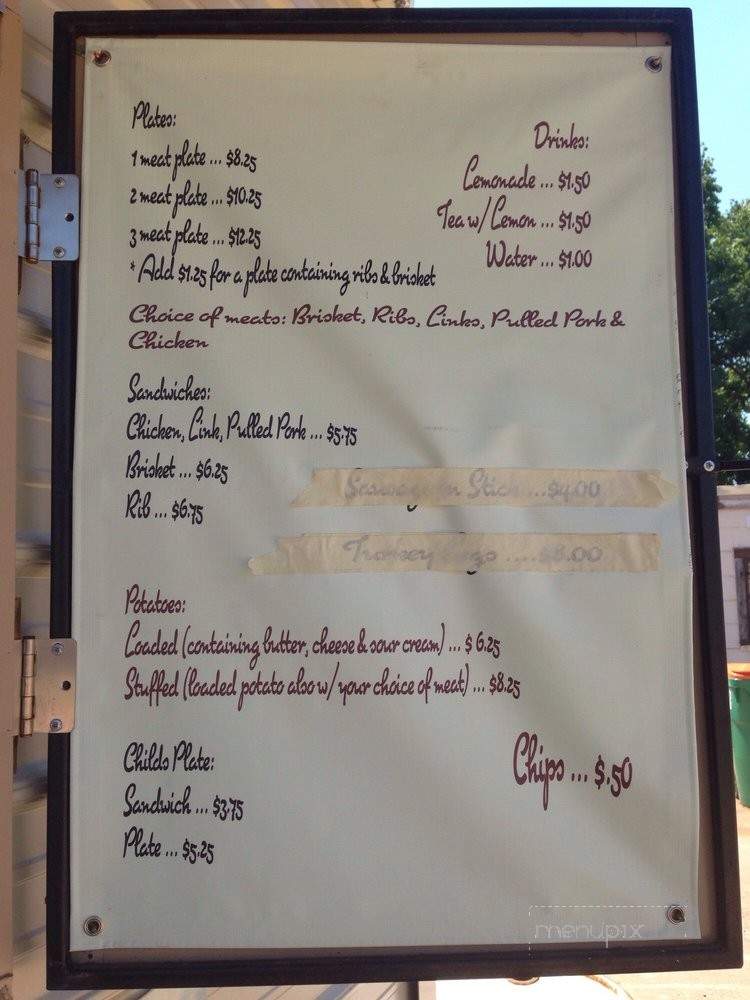 Plates:
1 meat plate ... $8.25
2 meat plate ... $10.25
3 meat plate ... $12.25
* Add $1.25 for a plate containing ribs & brisket
Drinks:
Lemonade ... $1.50
Tea w/ Lemon ... $1.50
Water ... $1.00
Choice of meats: Brisket, Ribs, Links, Pulled Pork &
Chicken
Sandwiches:
Chicken, Link, Pulled Pork ... $5.75
Brisket ... $6.25
Rib ... $6.75
Stick ...$4.00
....$8.00
Potatoes:
Loaded (containing butter, cheese & sour cream) ... $ 6.25
Stuffed (loaded potato also w/ your choice of meat) ... $8.25
Childs Plate:
Sandwich ... $3.75
Plate ... $5.25
Chips ... $.50
menupix